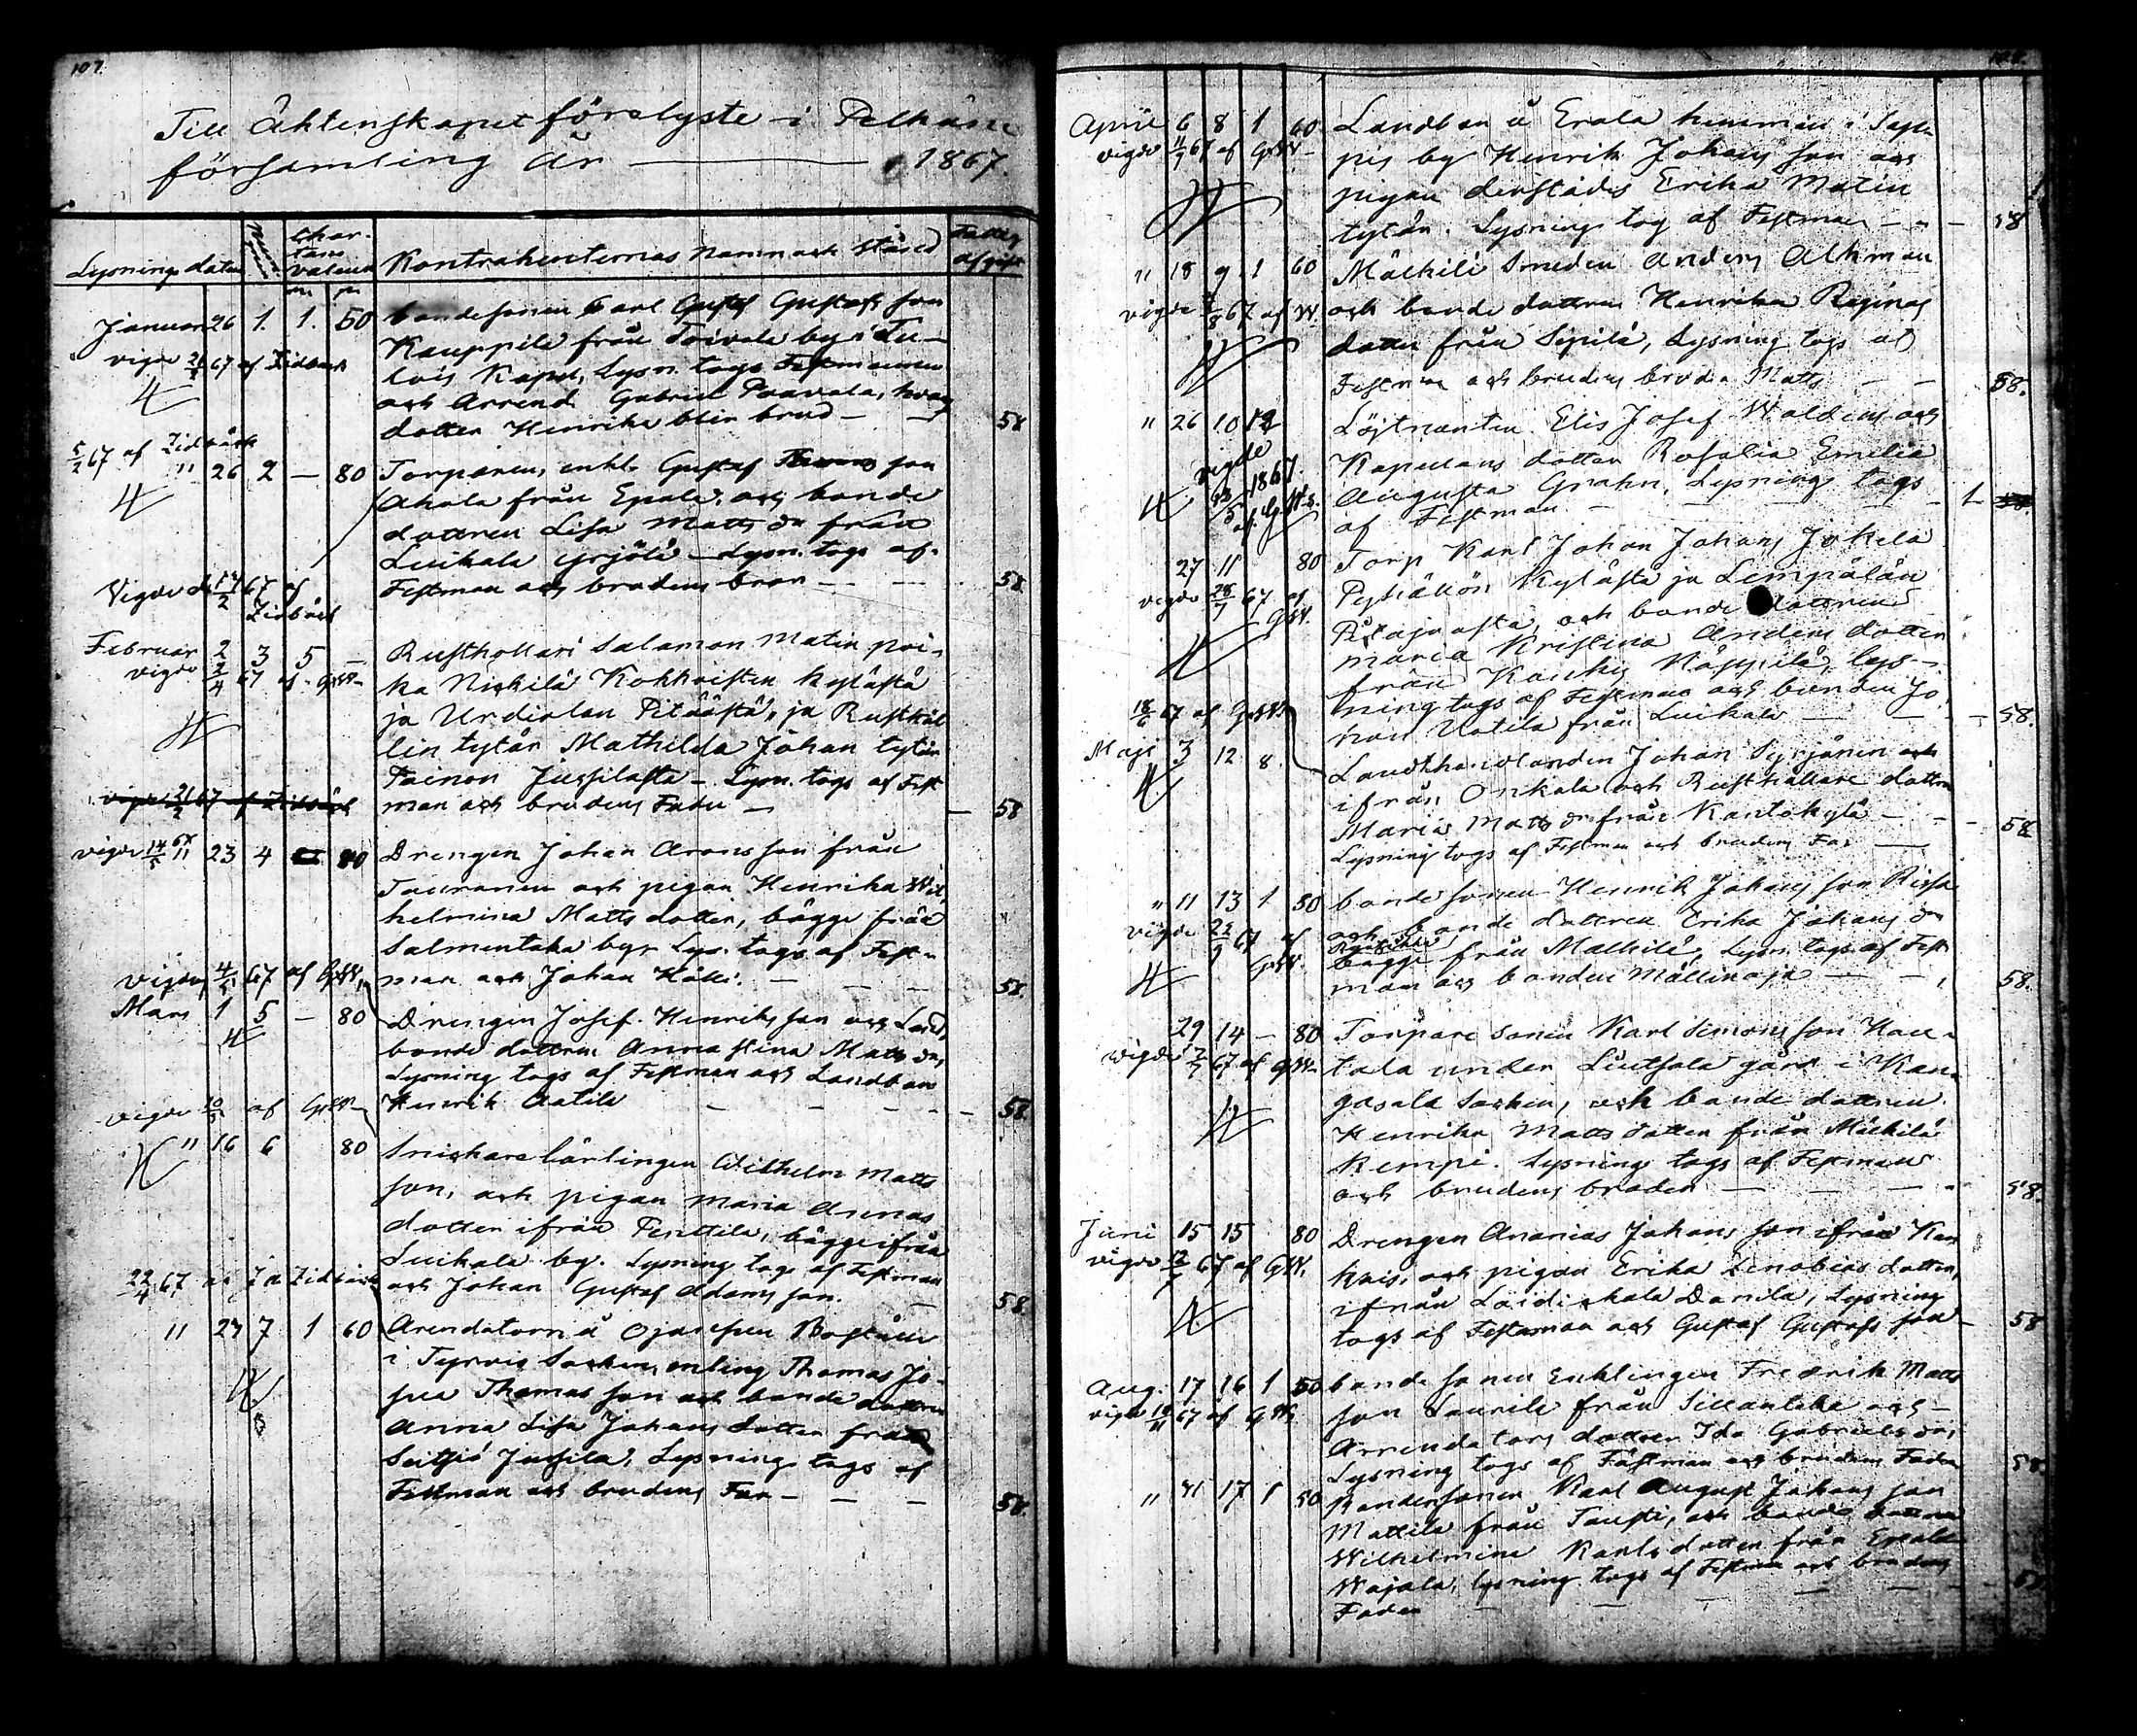 107.
Till Äktenskapet förelyste i Pelkäne
församling År 1867.
Lysnings datum
Char-
tans
valeur
Kontrahenternas namn och stånd
Fattig
afgift
Januari 26 1. 1. 50 bondesonen Carl Gustaf Gustafs son
Kauppila från Toivala by i Lu-
vigde 67 af Zidbäck
lois Kapel, Lysn. togs Festmannen
och Arrend. Gabriel Paavola, hvars
dotter Henrika blir brud 58
5/2 67 af Zidbäck
" 26 2 — 80 Torparen, enkl. Gustaf son
Ahala från Epala, och bonde
dottren Lisa Matts dr från
Luikala Yrjölä Lysn. togs af
Festman och brudens bror 58
Vigde d. 67 af
Zidbäck
Februar 2 3 5 — Rusthollari Salamon Matin poi-
vigde 67 af GW
ka Niskilä Kokkoisten kylästä
ja Urdialan Pitäästä, ja Rusthål
lin tytär Mathilda Johan tytär
Painon Jussilasta Lysn. togs af Fest
man och brudens Fader 58
vigde 67 af Zidbäck
vigde 14/5 67 " 23 4 80 Drengen Johan Arons son från
Tauranen och pigan Henrika Wil
helmina Matts dotter, bägge från
Salmentaka by, Lys. togs af Fest-
man och Johan Källi. 58.
vigde 67 af GW.
Mars 1 5 — 80 Drengen Josef Henriks son och Land
bonde dottren Anna Stina Matts dr,
Lysning togs af Festman och Landbon
Henrik Aatila 58
vigde af GW
" 16 6 80 Snickare lärlingen Wilhelm Matts
son, och pigan Maria Annas
dotter ifrån Penttila, bägge ifrån
Luikala by. Lysning togs af Festman
och Johan Gustaf Adams son. 58
22/4 67 af Zidbäck
" 24 7 1 60 Arendatorn å
i Tyrvis Socken, enkling Thomas Jo-
sua Thomas son och bonde dottren
Anna Lisa Johans dotter från
Seitsiö Jussila, Lysning togs af
Festman och brudens Far 58.
April 6 8 1 60 Landbon å Erola hemman i Sap-
vigde 67 af GW
pis by Henrik Johans son och
pigan derstädes Erika Matin
tytär. Lysning tog af Festman 58
" 18 9 1 60 Mälkilä Smeden Anders Alkman
vigde 67 af W.
och bonde dottren Henrika Reginas
dotter från Sipilä, Lysning togs af
Festman och brudens broder Matts 58.
" 26 10 12 Löjtnanten Elis Josef Waldens och
vigde 1867
Kapellans dotter Rosalia Emilia
Augusta Grahn, Lysning togs
af Festman 1
27 11 80 Torp Karl Johan Johans Jokela
vigde 28/7 67 af GW.
kylästä ja Lempälän
Pitäjästä, och bonde dottren
Maria Kristina Anders dotter
från Kouky Näppilä, lys-
ning togs af Festman och bonden Jo
han Uotila från Luikala 58.
18/6 67 af GW
Maji 3 12 8. Landthandlanden Johan Syrjänen och
ifrån Onkala och Rusthållare dotter
Maria Matts dr från Kantokylä
Lysning togs af Festman och brudens Far 58
" 11 13 1 80 bonde sonen Henrik Johans son
och bonde dottren Erika Johans dr
vigde 67 af GW.
bägge från Mälkilä, Lysn. togs af Fest
man och bonden Mällinoja 58.
29 14 — 80 Torpare sonen Karl Simons son Kau-
vigde 67 af GW
tala under Liutsala gård i Kan-
gasala Socken, och bonde dottren
Henrika Matts dotter från Mälkilä
Kempi. Lysning togs af Festman
och brudens broder 58.
Juni 15 15 80 Drengen Ananias Johans son ifrån Kan
vigde 67 af GW.
kais, och pigan Erika Zenobias dotter,
ifrån Laidikkala Danila, Lysning
togs af Festman och Gustaf Gustafs son 58
Aug. 17 16 1 50 bonde sonen Enklingen Fredrik Matts
vigde 67 af GW
son Laurila från Sillantaka och
Arrendators dotter Ida Gabriels dr,
Lysning togs af Fästman och brudens Fader 58.
" 31 17 1 50 Bondesonen Karl August Johans son
Mattila från Tausti, och bonde dottren
Wilhelmina Karls dotter från Epala
Wajala, lysning togs af Festman och brudens
Fader